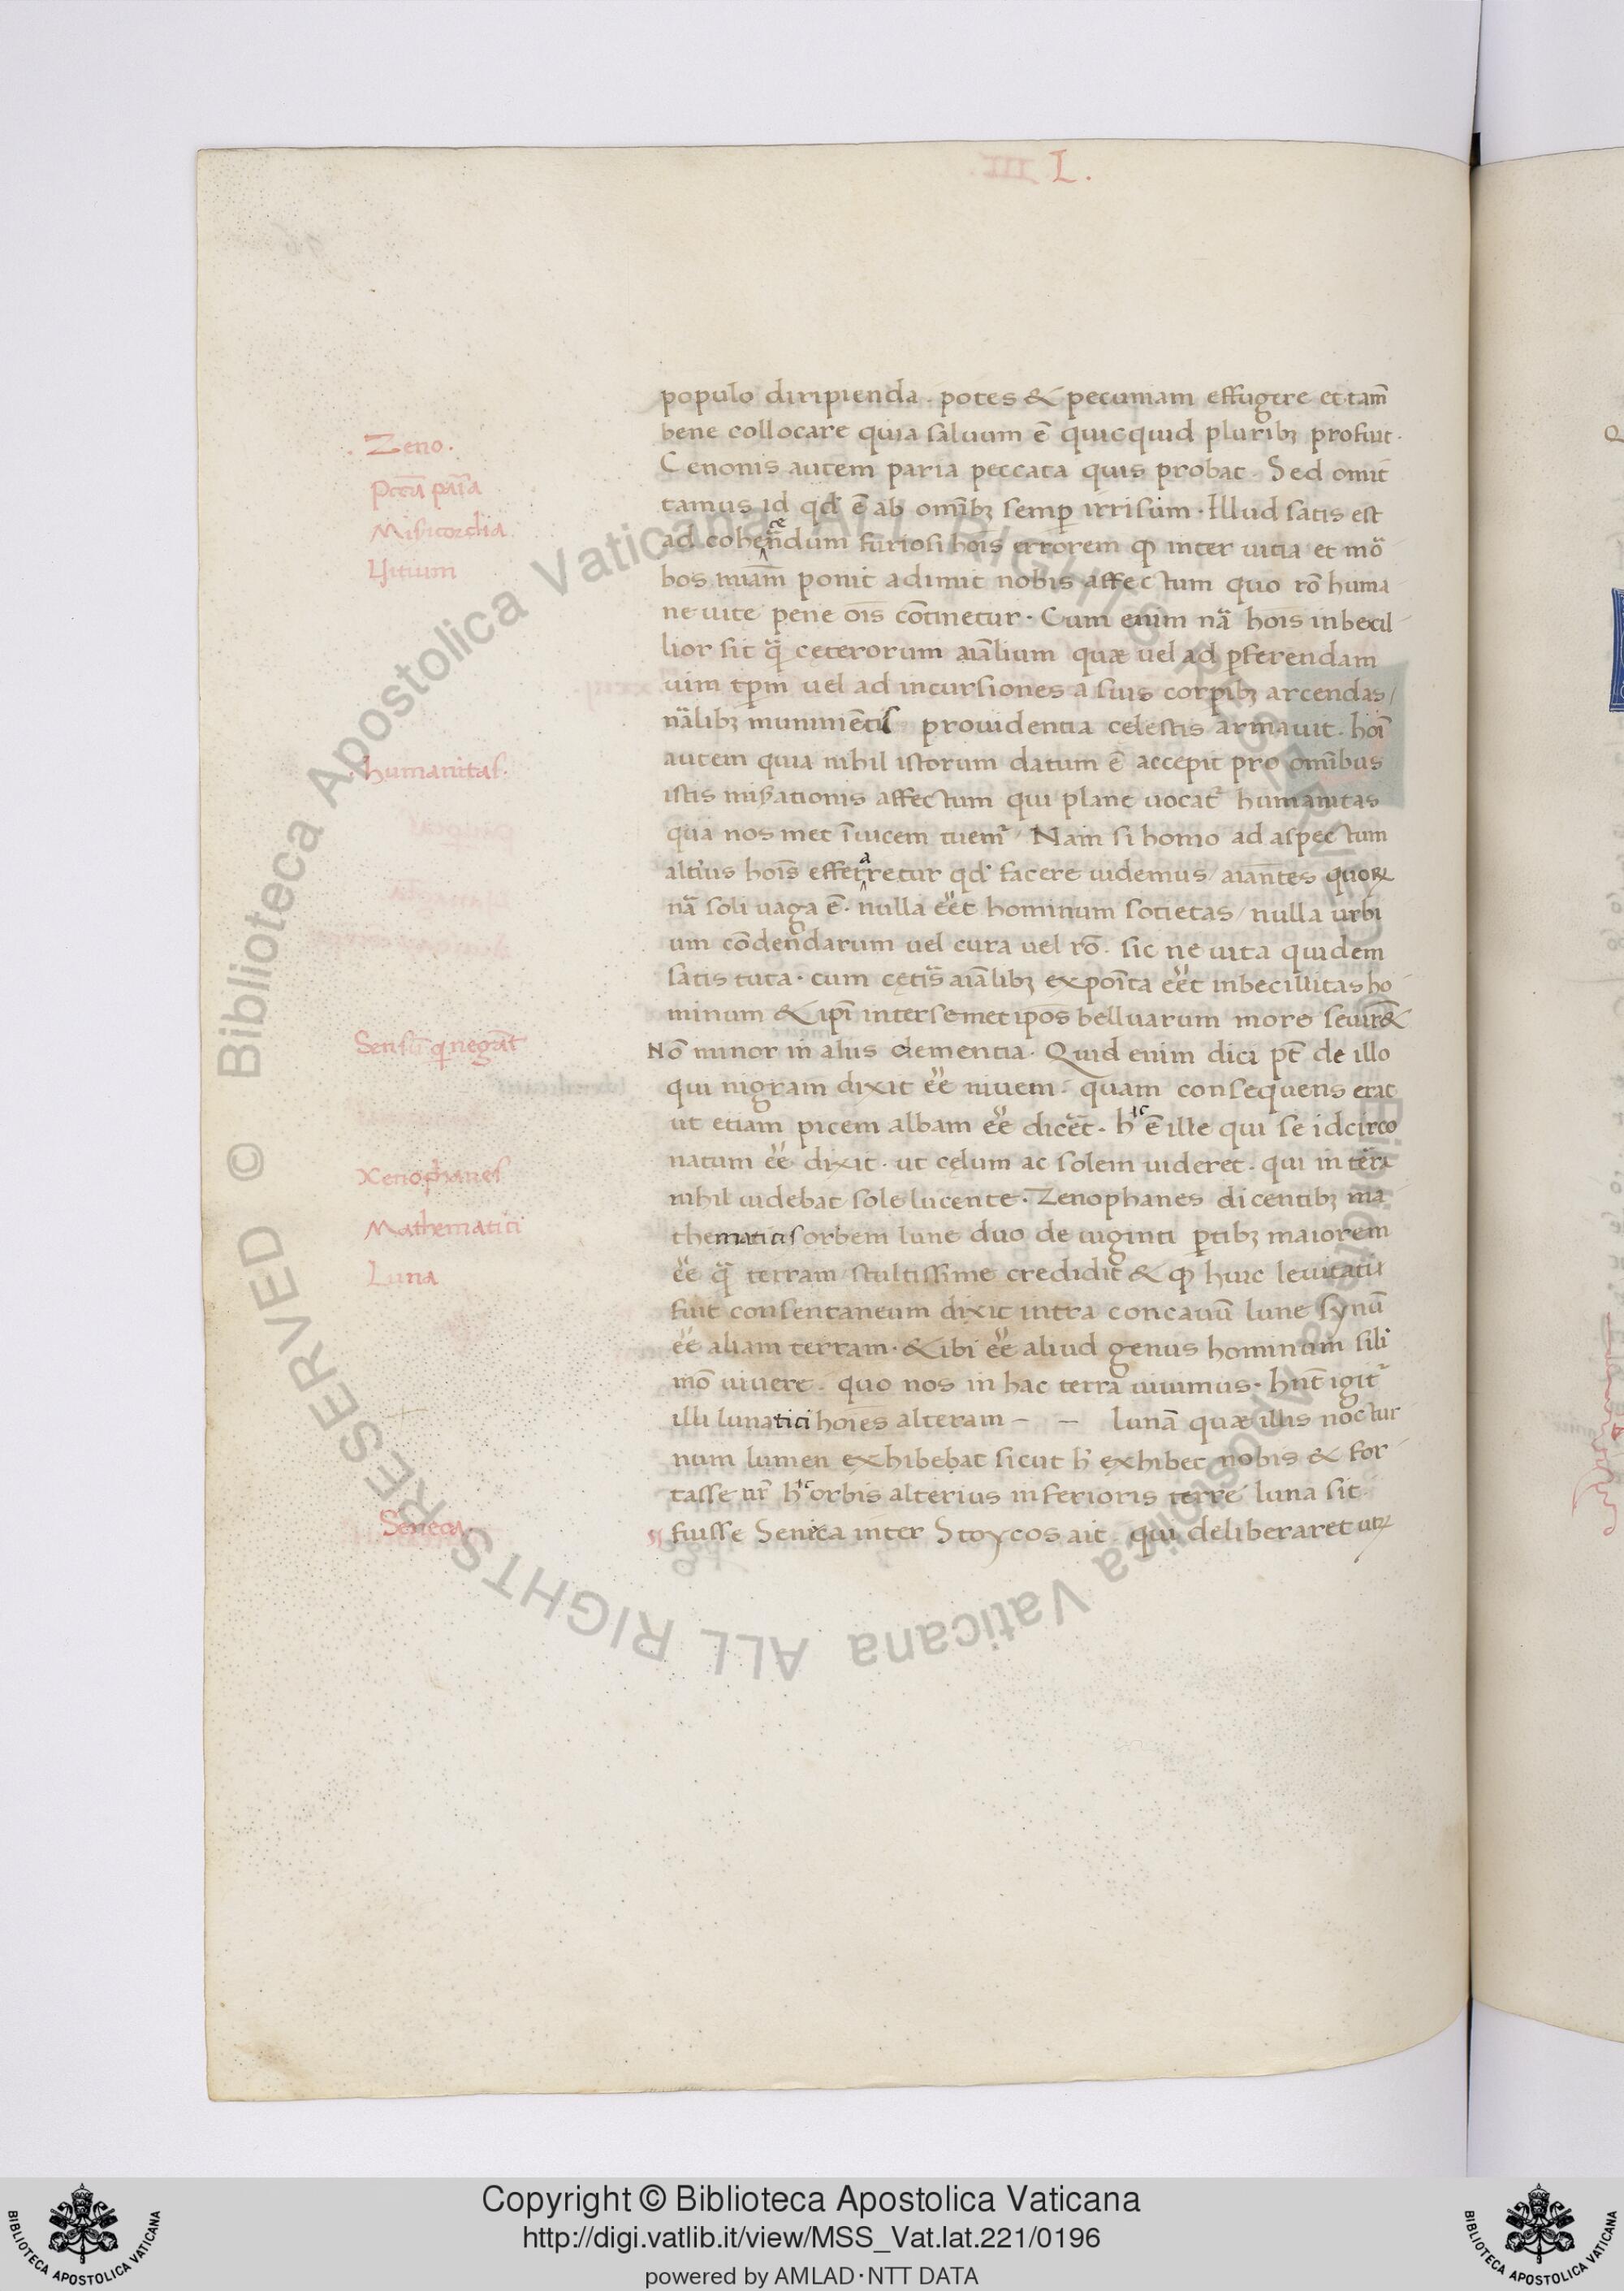 L.
populo diripienda. potes & pecuniam effugere et tam̄
bene collocare quia saluum ē quicquid pluribꝫ profuit.
Zeno.
Cenonis autem paria peccata quis probat. Sed omit
pctā pāia
tamus id qđ ē ab omībꝫ semꝑ irrisum. Illud satis est
Misericordia
ad cohercendum furiosi hoīs errorem ꝙ inter uitia et mor
Vitium
bos miam̄ ponit adimit nobis affectum quo rō huma
ne uite pene oīs cōtinetur. Cum enim nā hoīs inbecil
lior sit qᷓ ceterorum aīalium quæ uel ad ꝑferendam
uim tꝑm uel ad incursiones a suis corꝑibꝫ arcendas/
nālibꝫ munimētis prouidentia celestis armauit. hoī
humanitas.
autem quia nihil istorum datum ē accepit pro omībus
istis miserationis affectum qui plane uocatr̄ humanitas
qua nos met īuicem tuemr̄. Nam si homo ad aspectum
altius hoīs efferaretur qđ facere uidemus/ aīantes quoꝝ
nā soli uaga ē. nulla eēt hominum societas/ nulla urbi
um cōdendarum uel cura uel rō. sic ne uita quidem
satis tuta. cum cetis̄ aīalibꝫ expoīta eēt inbecillitas ho
minum & ipī inter semet ipōs belluarum more seuirēt
Sensū q̄ negāt
Nō minor in aliis dementia. Quid enim dici pt̄ de illo
qui nigram dixit eē niuem. quam consequens erat
ut etiam picem albam eē dicēt. hic ē ille qui se idcirco
Xenophanes
natum eē dixit. ut celum ac solem uideret. qui in terr
nihil uidebat sole lucente. Zenophanes dicentibꝫ ma
Mathematici
thematicis orbem lune duo de uiginti ꝑtibꝫ maiorem
Luna
eē qᷓ terram stultissime credidit & ꝙ huic leuitati
fuit consentaneum dixit intra concauū lune synū
eē aliam terram. & ibi eē aliud genus hominum sili
mō uiuere. quo nos in hac terra uiuimus. hn̄t igitr̄
illi lunatici hoīes alteram – – lunā quæ illis noctur
num lumen exhibebat sicut h exhibet nobis & for
tasse nr̄ hic orbis alterius inferioris terre luna sit.
Seneca.
¶ fuisse Seneca inter Stoycos ait. qui deliberaret utꝝ
Copyright © Biblioteca Apostolica Vaticana
http://digi.vatlib.it/view/MSS_Vat.lat.221/0196
powered by AMLAD·NTT DATA
BIBLIOTECA APOSTOLICA VATICANA
BIBLIOTECA APOSTOLICA VATICANA
© Biblioteca Apostolica Vaticana ALL RIGHTS RESERVED
© Biblioteca Apostolica Vaticana ALL RIGHTS RESERVED